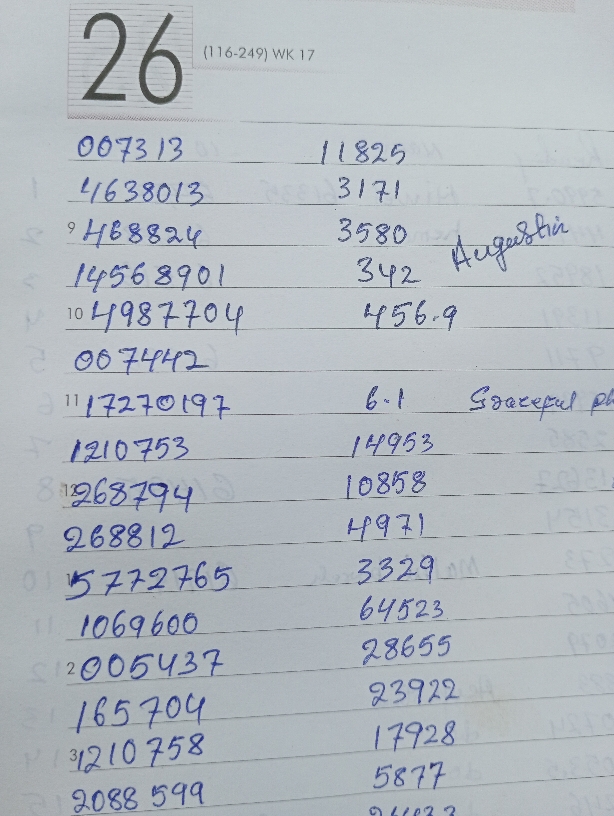 26 (116-249) WK 17
007313 11825
4638013 3171
9 468824 3580 Augustin
14568901 342
10 4987704 456.9
007442
11 17270197 6.1 Graceful
1210753 14953
12 268794 10858
268812 4971
1 5772765 3329
1069600 64523
2 005437 28655
165704 23922
3 1210758 17928
2088599 5877